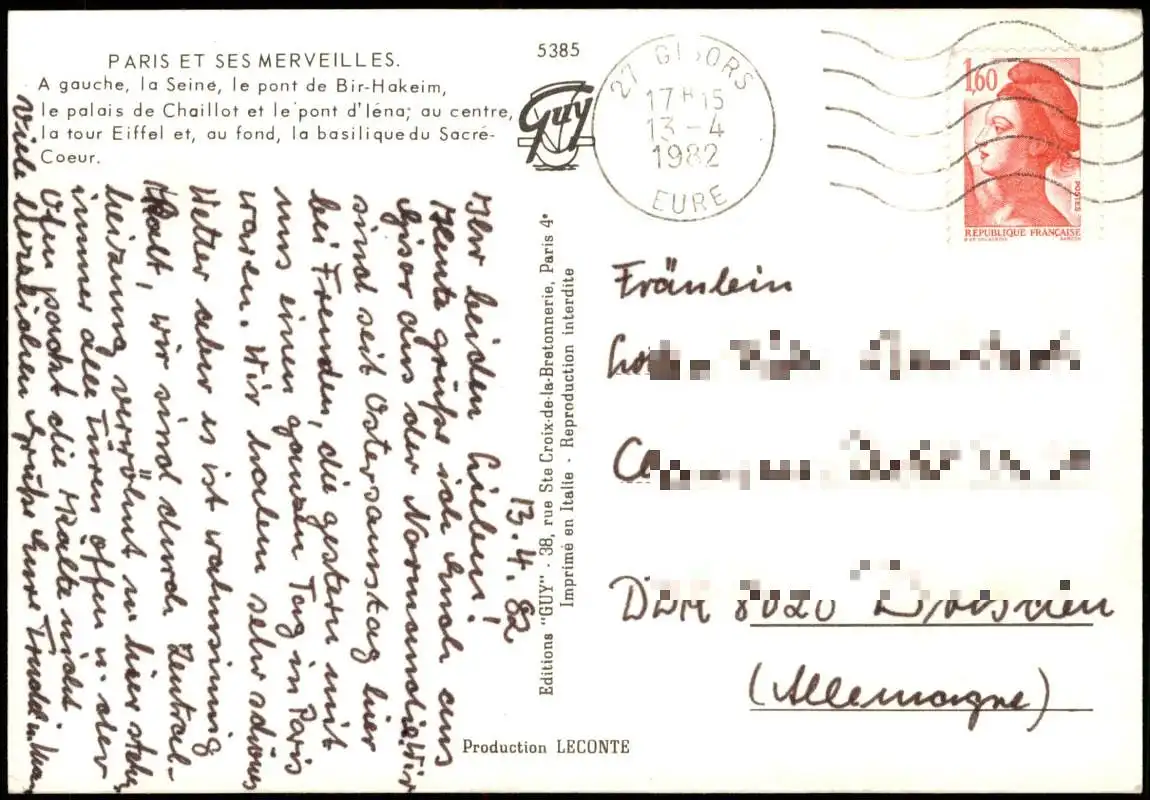 PARIS ET SES MERVEILLES.
A gauche, la Seine, le pont de Bir-Hakeim,
le palais de Chaillot et le pont d'Iéna; au centre,
la tour Eiffel et, au fond, la basilique du Sacré-
Coeur.
5385
Guy
27 GISORS
17 H 15
13-4
1982
EURE
1,60
POSTES
REPUBLIQUE FRANÇAISE
13.4.82
Ihr beiden Lieben!
Heute grüße ich Euch aus
Gisor aus der Normandie. Wir
sind seit Ostersamstag hier
bei Freunden, die gestern mit
uns einen ganzen Tag in Paris
waren. Wir haben sehr schönes
Wetter aber es ist wahnsinnig
kalt, wir sind durch Zentral-
heizung verwöhnt u. hier stehen
immer alle Türen offen u. der
Ofen packt die Kälte nicht
Viele herzlichen Grüße Eure Trudel u.
Editions "GUY" - 38, rue Ste Croix-de-la-Bretonnerie, Paris 4e
Imprimé en Italie - Reproduction interdite
Production LECONTE
Fräulein
DDR 8020 Dresden
(Allemagne)